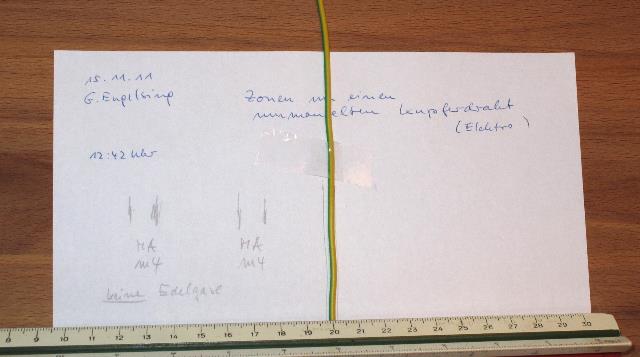 15.11.11
G. Engelsing
Zonen um einen
ummantelten Kupferdraht
(Elektro)
12:42 Uhr
HA HA
m4 m4
keine Edelgase
8 9 10 11 12 13 14 15 16 17 18 19 20 21 22 23 24 25 26 27 28 29 30